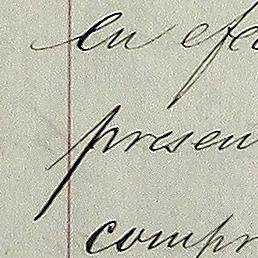 en efe
presen
compr